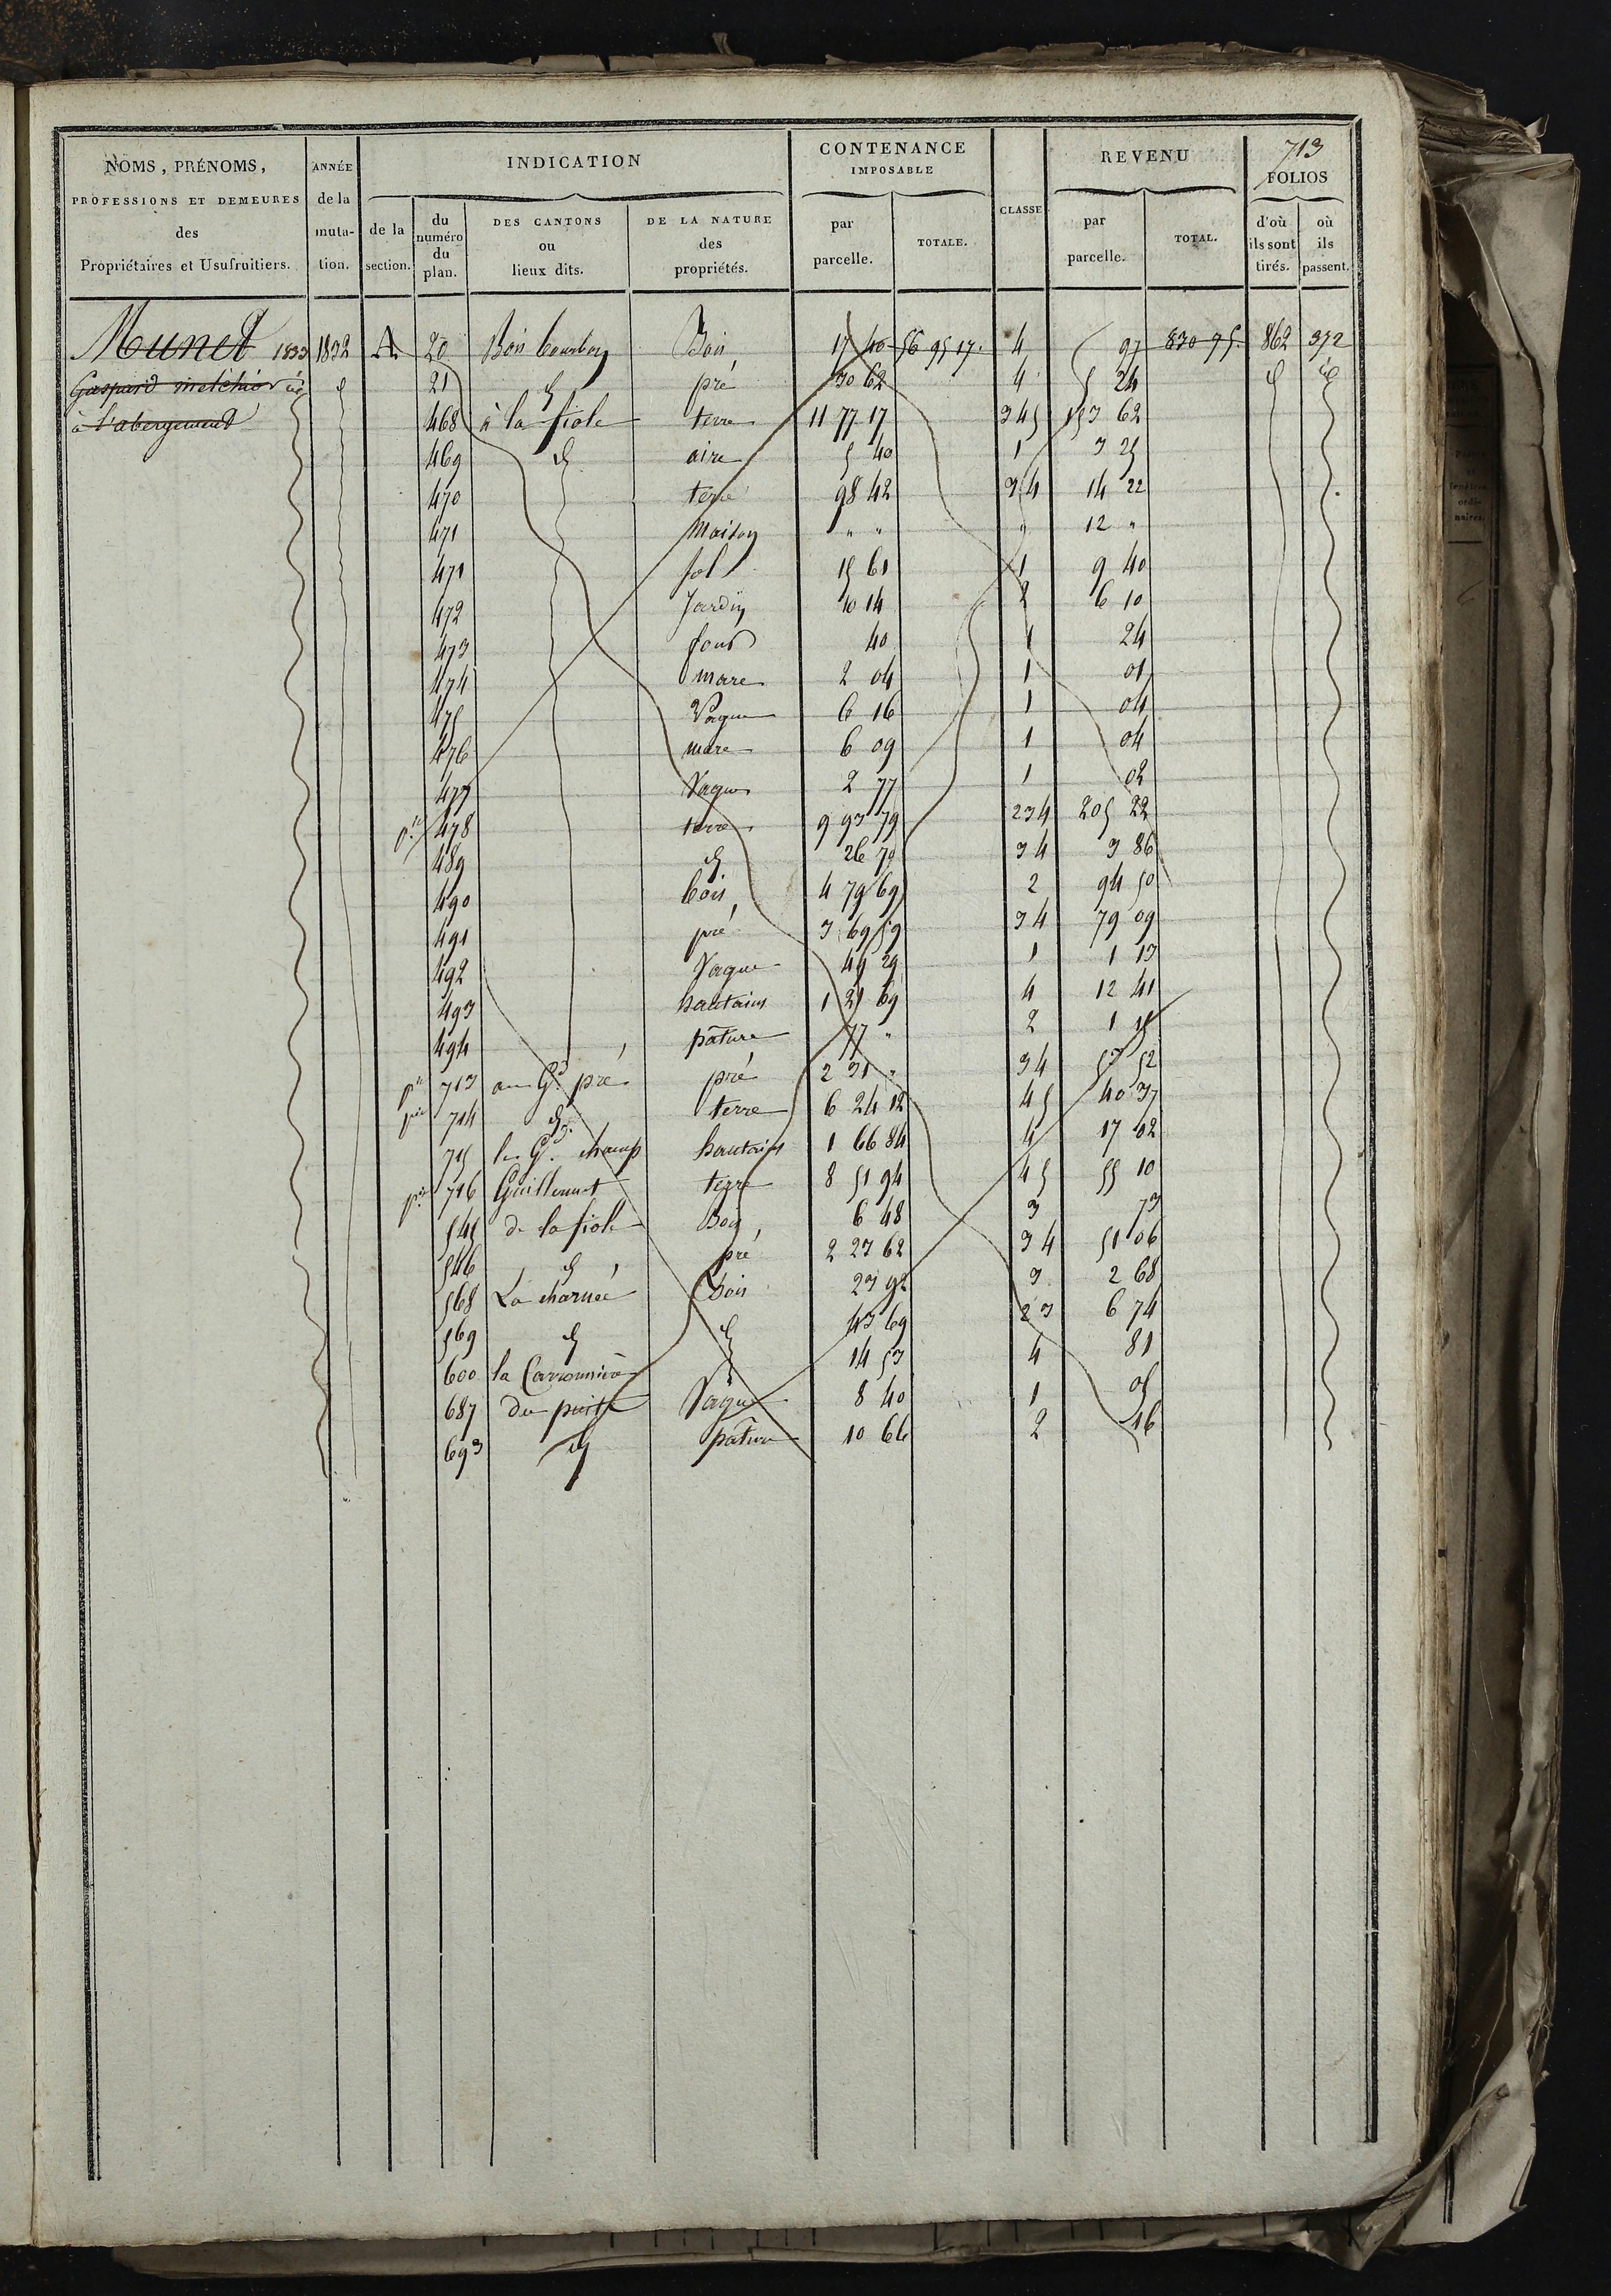 713
NOMS, PRÉNOMS, PROFESSIONS ET DEMEURES des Propriétaires et Usufruitiers.
ANNÉE de la muta-tion.
INDICATION
de la section.
du numéro du plan.
DES CANTONS ou lieux dits.
DE LA NATURE des propriétés.
CONTENANCE IMPOSABLE
par parcelle.
TOTALE.
CLASSE
REVENU
par parcelle.
TOTAL.
FOLIOS
d'où ils sont tirés.
où ils passent.
Munet 1833 1832 A 20 Bois Bourbon Bois 17 40 56 95 17 4 97 830 95 862 372
Gaspard melchior id d 21 d pré 30 62 4 5 24 d id
à l'abergement 468 à la fiole terre 11 77 17 3 4 5 153 62
469 d aire 5 40 1 3 25
470 terre 98 42 3 4 14 22
471 Maison " " " 12 "
471 sol 15 61 1 9 40
472 Jardin 10 14 2 6 10
473 four 40 1 24
474 mare 2 04 1 01
475 Vague 6 16 1 04
476 mare 6 09 1 04
477 Vague 2 77 1 02
pie 478 terre 9 93 79 2 3 4 205 22
489 d 26 79 3 4 3 86
490 bois 4 79 69 2 94 50
491 pré 3 69 59 3 4 79 09
492 Vague 49 29 1 1 13
493 hautains 1 21 69 4 12 41
494 pâture 77 " 2 1 15
pie 713 au Gd pré pré 2 31 " 3 4 57 52
pie 714 d terre 6 24 12 4 5 40 37
715 le Gd champ hautains 1 66 84 4 17 02
pie 716 Guillemet terre 8 51 94 4 5 55 10
545 de la fiole Bois 6 48 3 73
546 d pré 2 23 62 3 4 51 06
568 La charnée bois 23 92 3 2 68
569 d d 43 69 2 3 6 74
600 la Carronnière 14 53 4 81
687 du puits Vague 8 40 1 05
693 d pâture 10 66 2 16